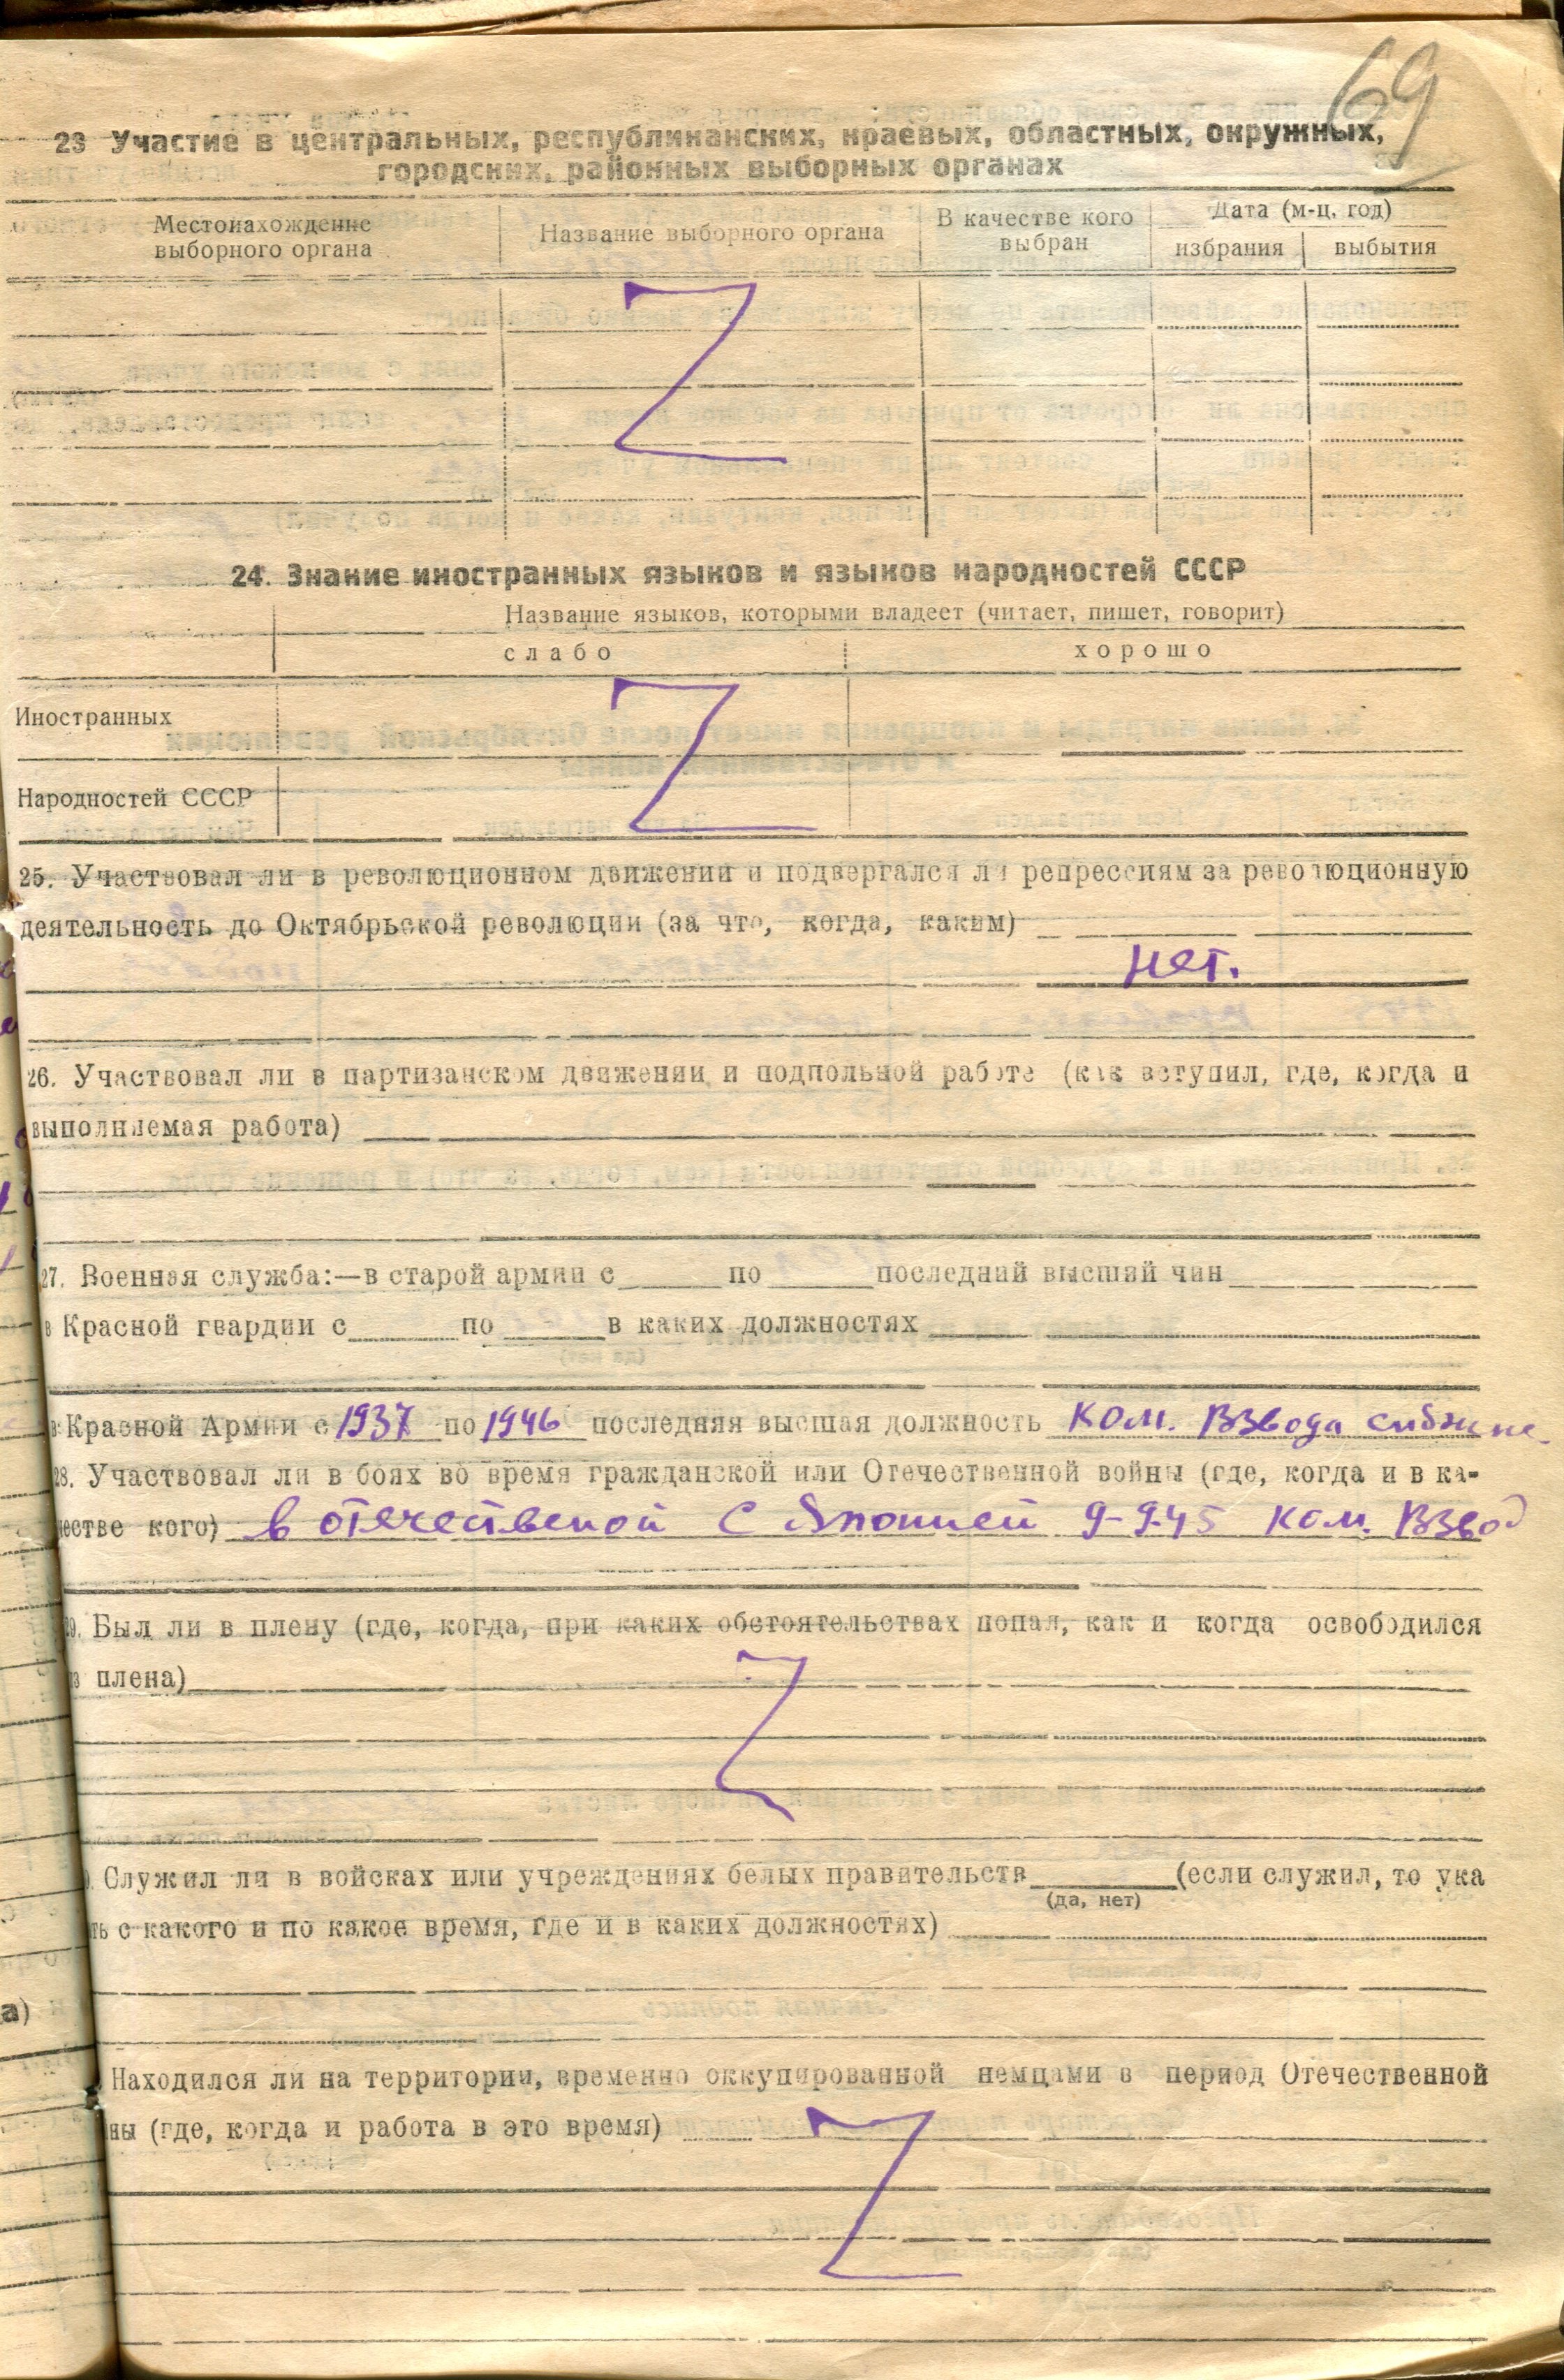 69
23 Участие в центральных, республиканских, краевых, областных, окружных,
городских, районных выборных органах
Местонахождение выборного органа
Название выборного органа
В качестве кого выбран
Дата (м-ц, год)
избрания
выбытия
Z
24. Знание иностранных языков и языков народностей СССР
Название языков, которыми владеет (читает, пишет, говорит)
слабо
хорошо
Иностранных
Z
Народностей СССР
25. Участвовал ли в революционном движении и подвергался ли репрессиям за революционную
деятельность до Октябрьской революции (за что, когда, каким)
нет.
26. Участвовал ли в партизанском движении и подпольной работе (как вступил, где, когда и
выполняемая работа)
27. Военная служба:—в старой армии с по последний высший чин
в Красной гвардии с по в каких должностях
в Красной Армии с 1937 по 1946 последняя высшая должность Ком. Взвода
28. Участвовал ли в боях во время гражданской или Отечественной войны (где, когда и в ка-
честве кого) в отечественой с Японией 9-9-45 Ком. Взвод
29. Был ли в плену (где, когда, при каких обстоятельствах попал, как и когда освободился
из плена)
Z
Служил ли в войсках или учреждениях белых правительств (если служил, то ука
(да, нет)
ть с какого и по какое время, где и в каких должностях)
а)
Находился ли на территории, временно оккупированной немцами в период Отечественной
ны (где, когда и работа в это время)
Z